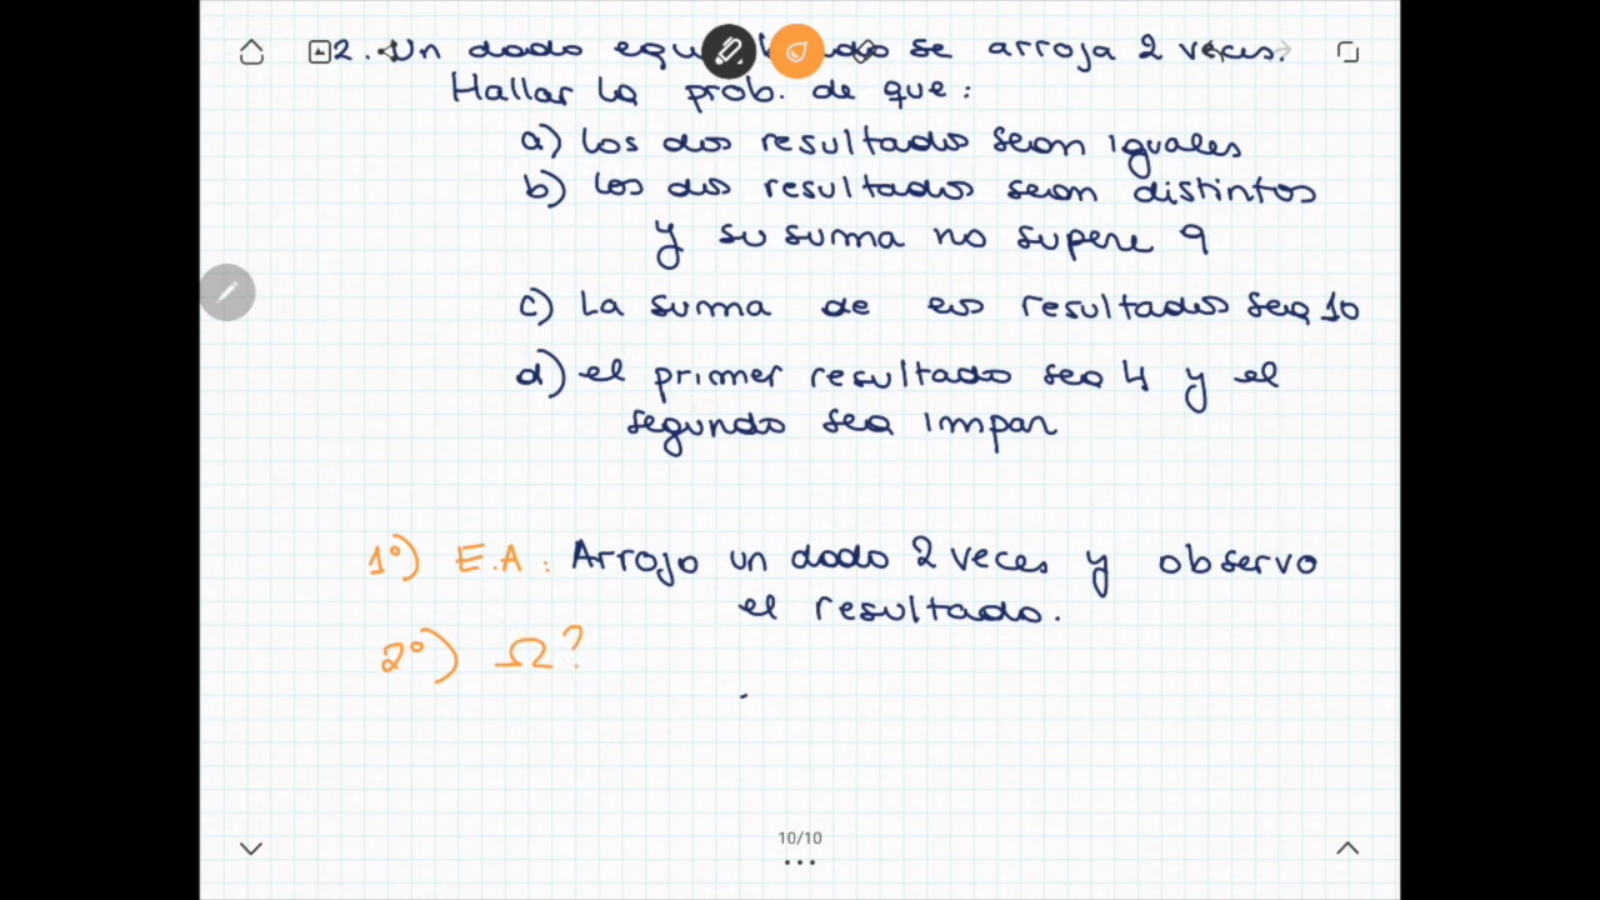 2. Un dado se arroja 2 veces.
Hallar la prob. de que:
a) los dos resultados sean iguales
b) los dos resultados sean distintos
y su suma no supere 9
c) La suma de los resultados sea 10
d) el primer resultado sea 4 y el
segundo sea impar
1º) E.A: Arrojo un dado 2 veces y observo
el resultado.
2º) Ω?
10/10